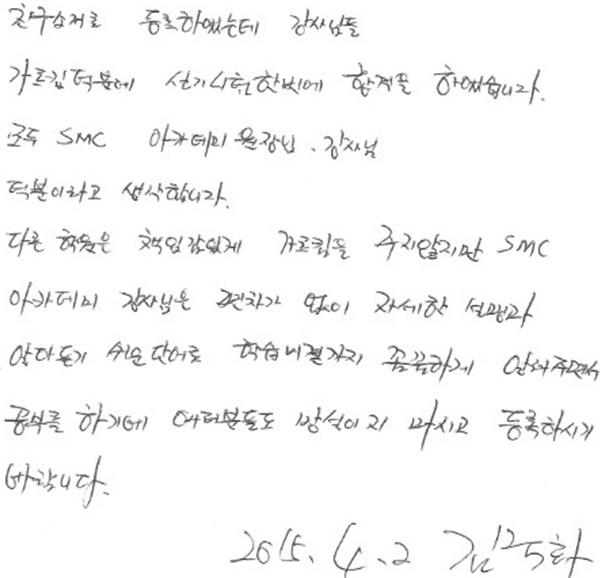 친구소개로 등록하였는데 강사님들
가르킴덕분에 실기시험한번에 합격을 하였습니다.
모두 SMC 아카데미 원장님, 강사님
덕분이라고 생각합니다.
다른 학원은 책임감있게 가르킴을 주지않지만 SMC
아카데미 강사님은 편차가 없이 자세한 설명과
알아듣기 쉬운단어로 학습내결까지 꼼꼼하게
공부를 하기에 여러분들도 망설이지 마시고 등록하시기
바랍니다.
2015. 4. 2